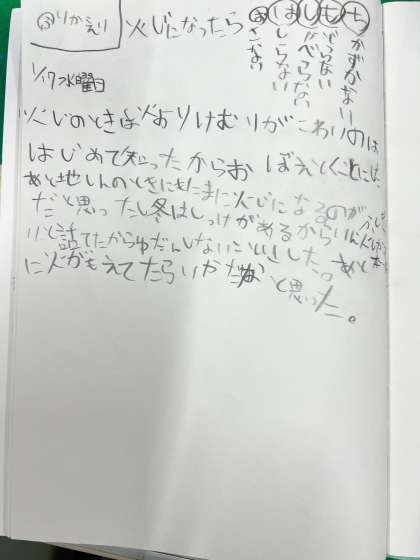 ふりかえり
火じになったら
おさない
はしらない
しゃべらない
もどらない
ちかずかない
1/17水曜日
火じのときは火よりけむりがこわいのは
はじめて知ったからおぼえとくことにした
あと地しんのときにもたまに火じになるのが
だと思ったし冬はしっけがあるから
いと話してたからゆだんしないことにした。あと
に火がもえてたらいかだな と思った。